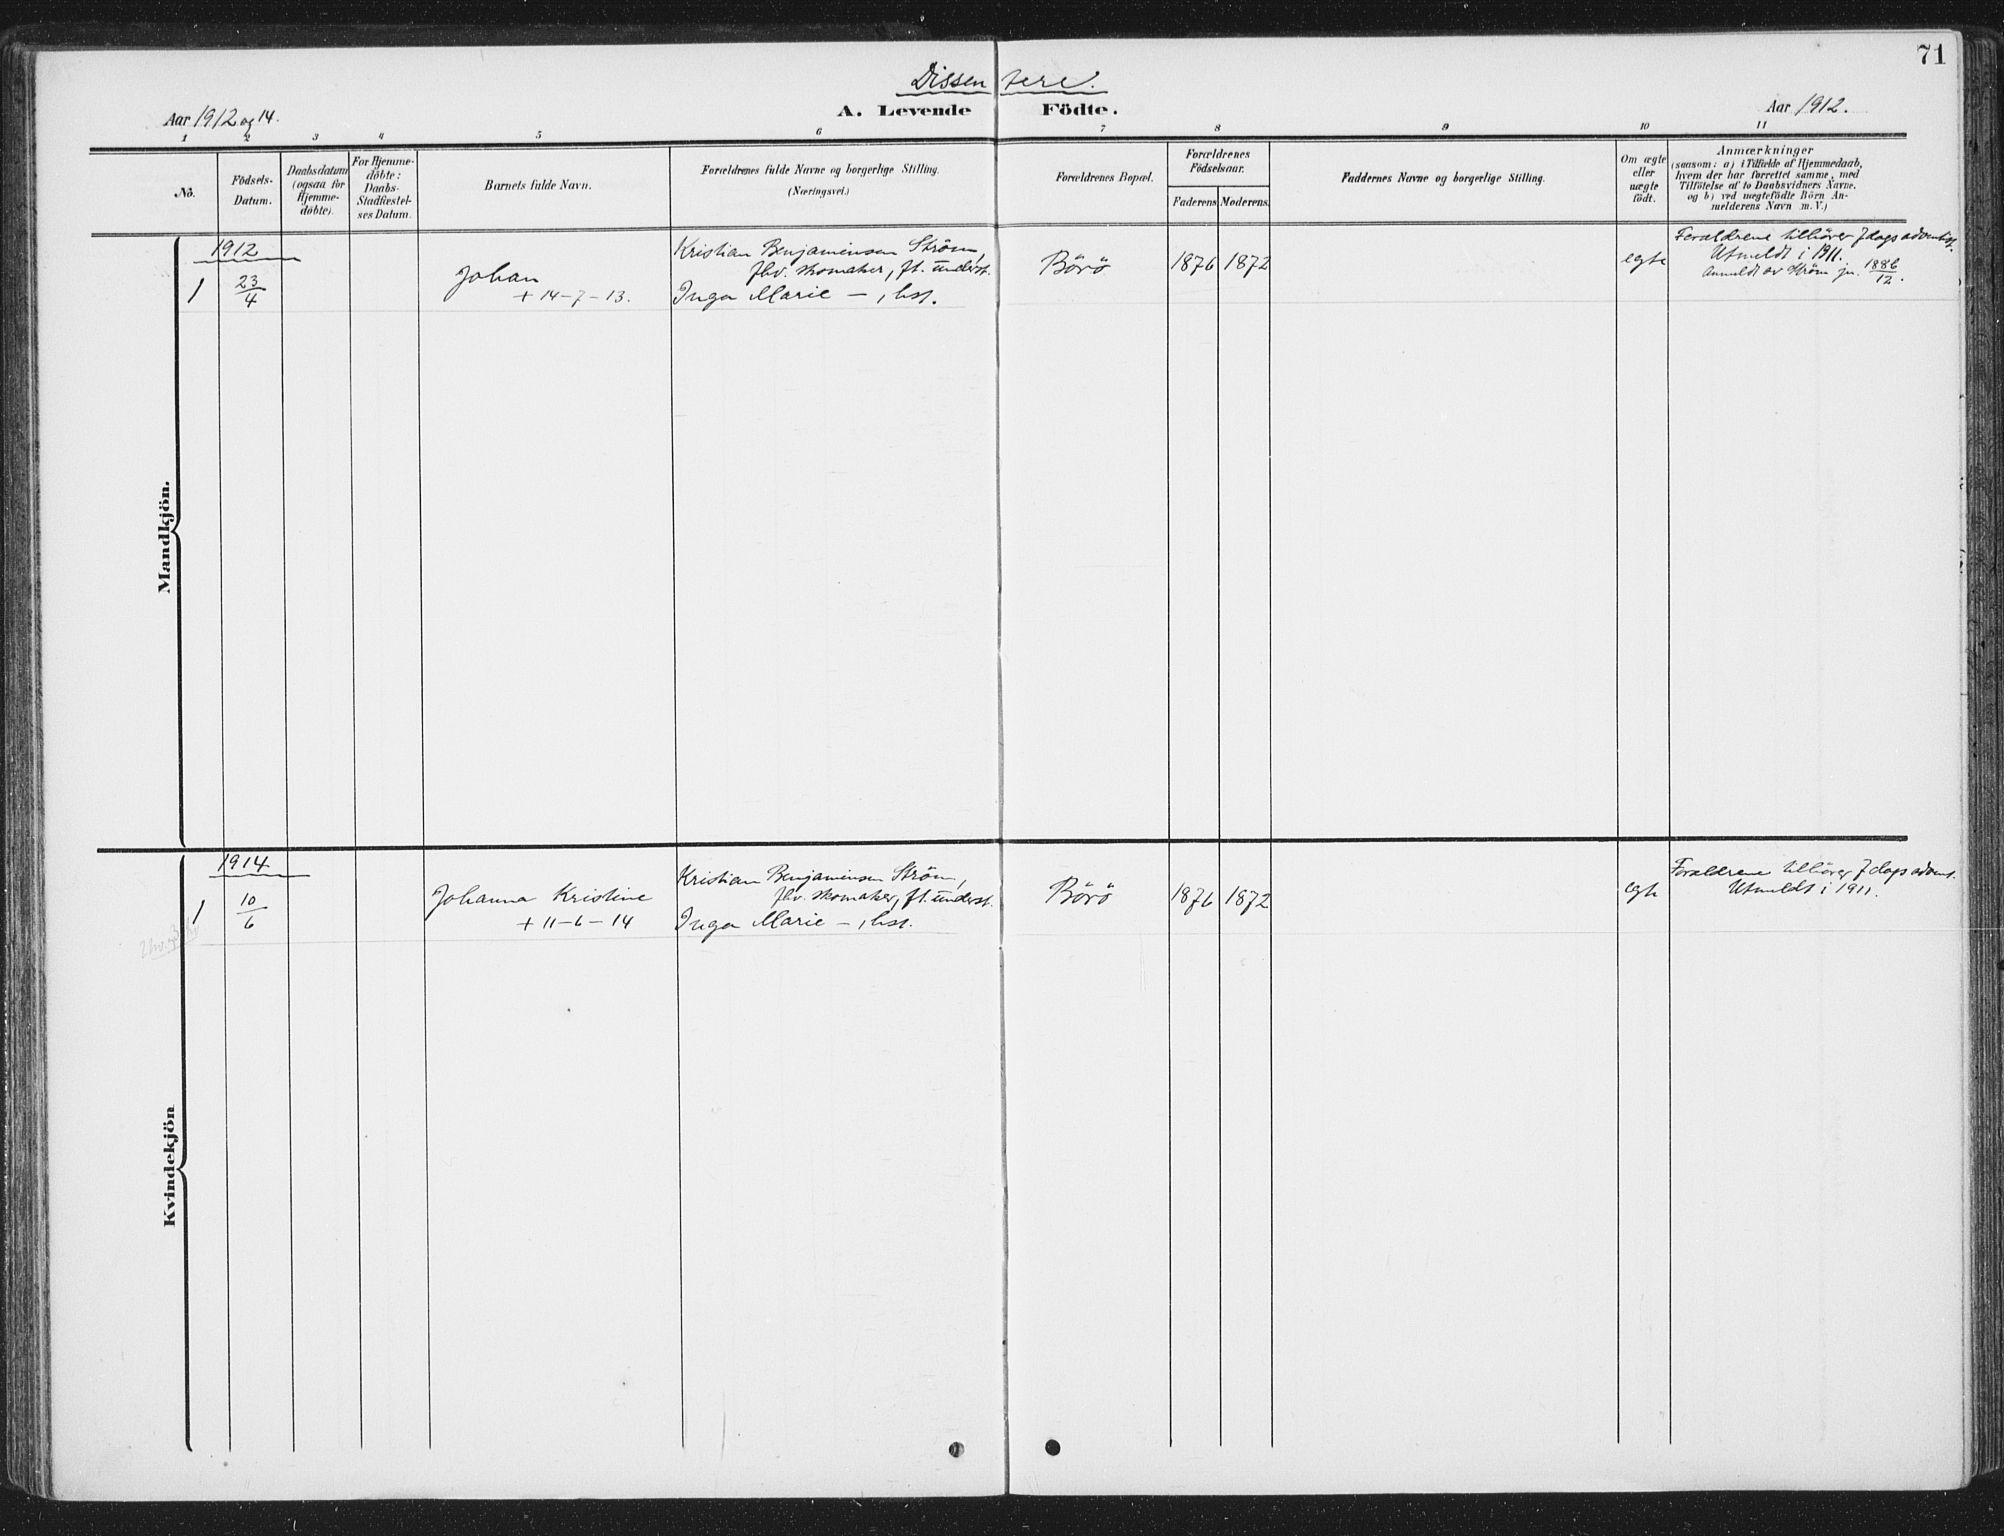 71
Dissentere.
Aar 1912 og 14.
A. Levende Födte.
Aar 1912.
1 2 3 4 5 6 7 8 9 10 11
No.
Födsels-
Datum.
Daabsdatum
(ogsaa for
Hjemme-
döbte).
For Hjemme-
döbte:
Daabs-
Stadfæstel-
ses Datum.
Barnets fulde Navn.
Forældrenes fulde Navne og borgerlige Stilling.
(Næringsvei.)
Forældrenes Bopæl.
Forældrenes
Födselsaar.
Faderens Moderens.
Faddernes Navne og borgerlige Stilling.
Om ægte
eller
uægte
födt.
Anmærkninger
(saasom: a) i Tilfælde af Hjemmedaab,
hvem der har forrettet samme, med
Tilföielse af to Daabsvidners Navne,
og b) ved uægtefödte Börn An-
melderens Navn m. V.)
Mandkjön.
1912
1 23/4
Johan
+ 14-7-13.
Kristian Benjaminsen Ström,
fhv. skomaker, ft. underst.
Inga Marie — , hst.
Börö
1876 1872
egte
Foraldrene tilhörer 7dags adventist.
Utmeldt i 1911.
Anmeldt av Ström jn. 1886/12.
Kvindekjön
1914
1 10/6
Johanna Kristine
+ 11-6-14
Kristian Benjaminsen Ström,
fhv. skomaker, ft. underst.
Inga Marie — , hst.
Börö
1876 1872
egte
Foraldrene tilhörer 7dags advent.
Utmeldt i 1911.